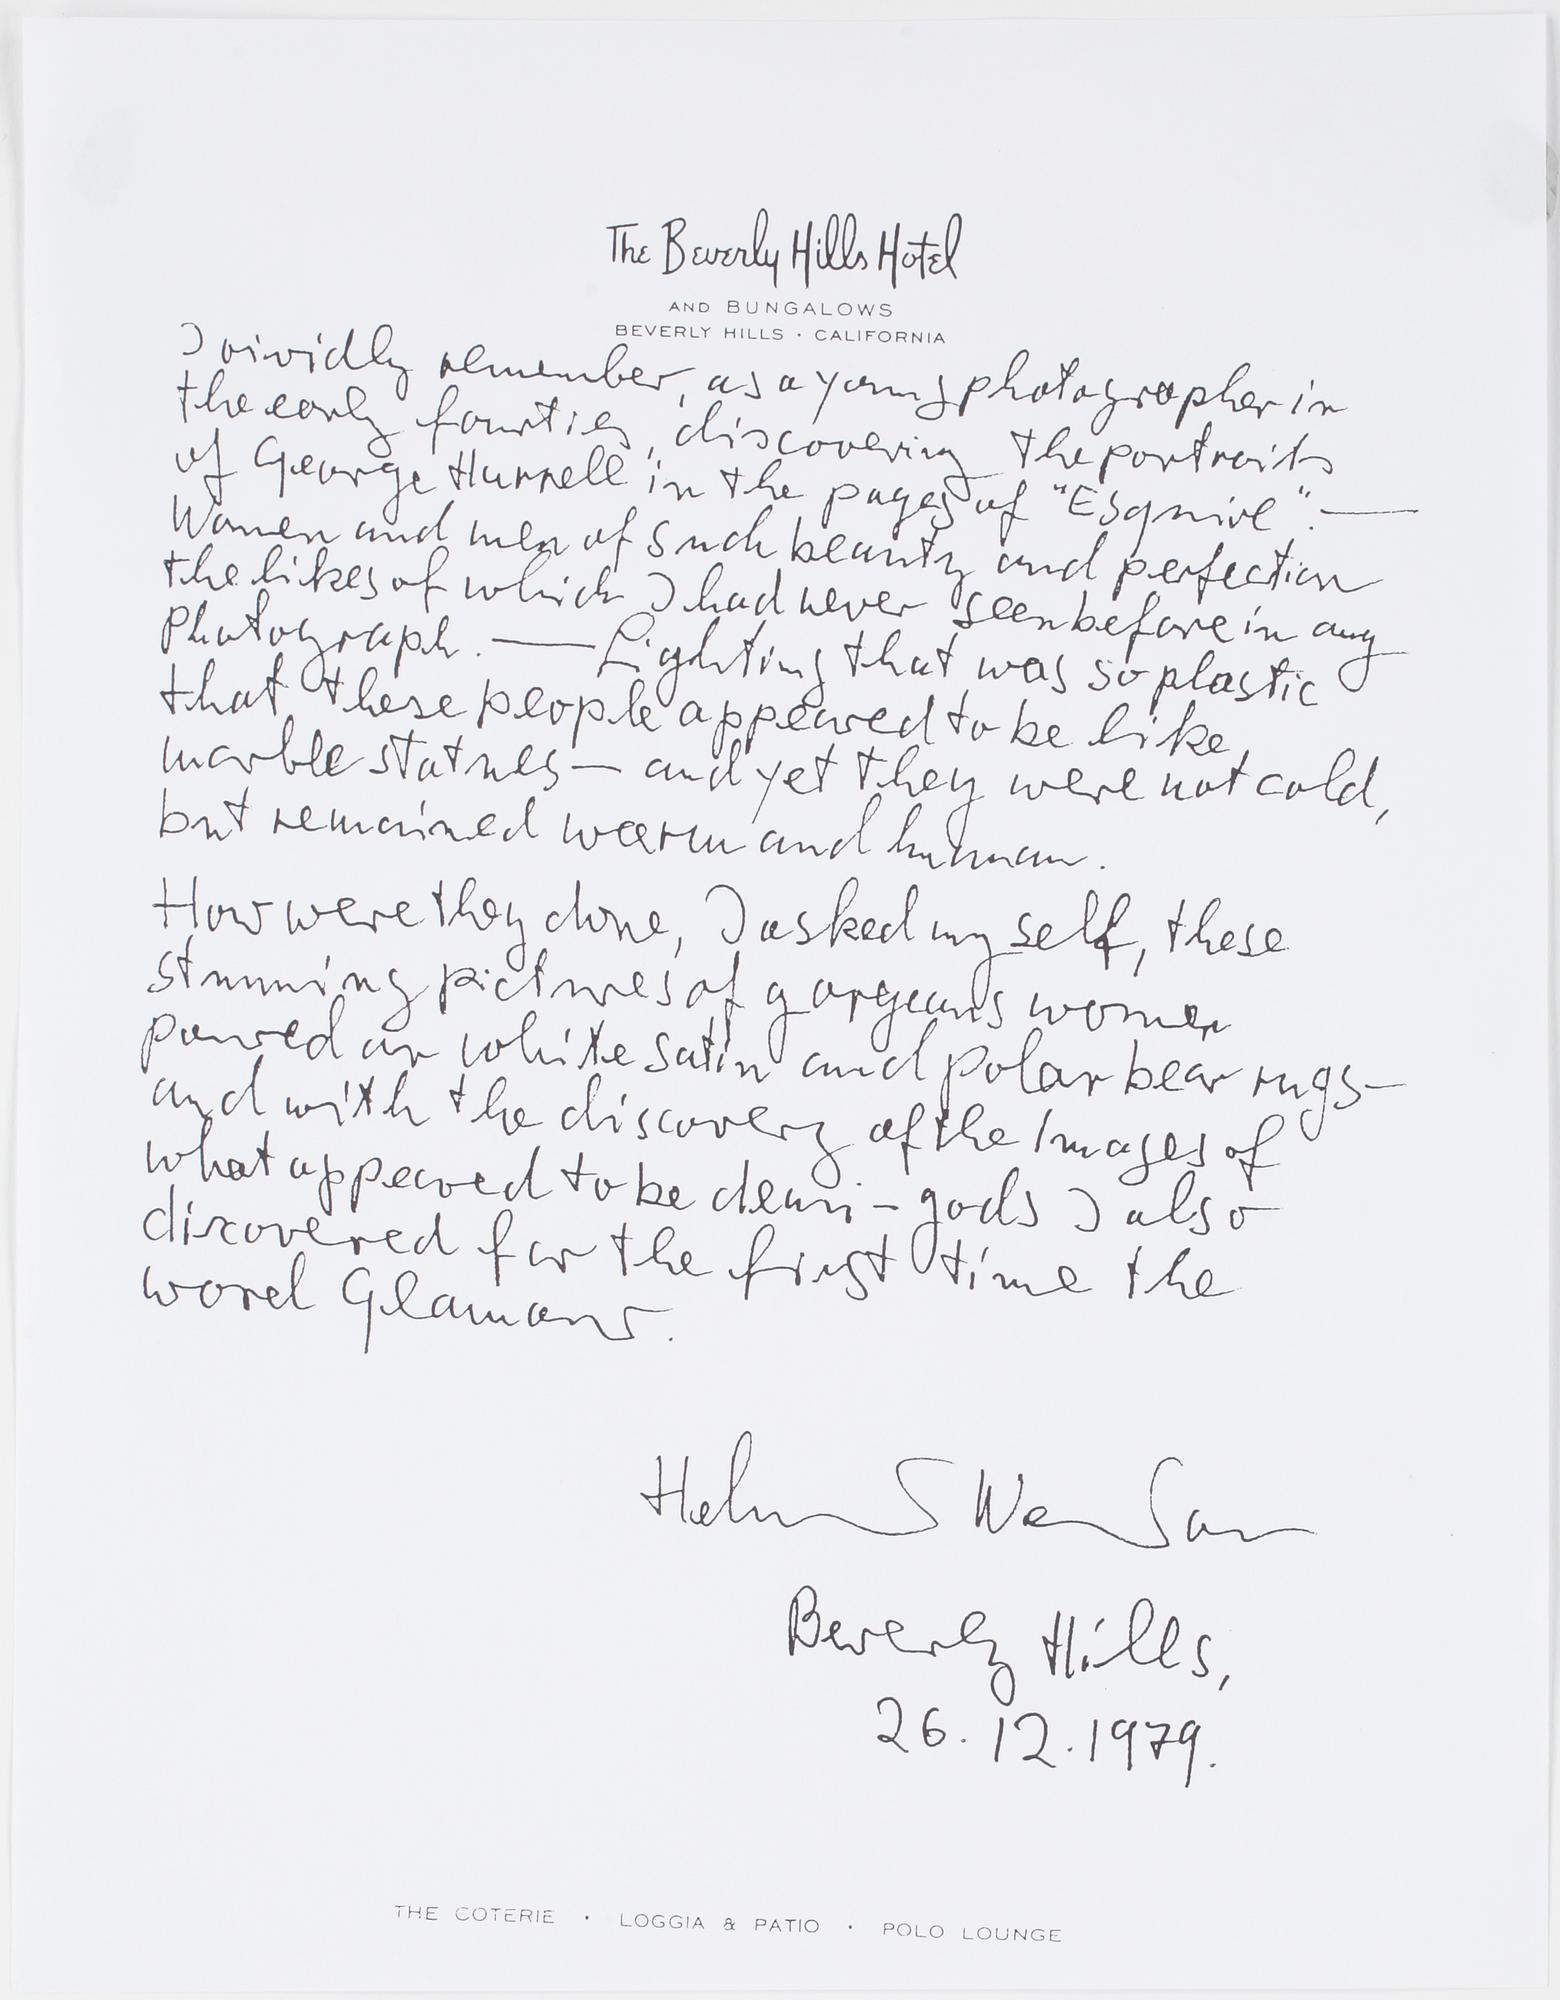 The Beverly Hills Hotel
AND BUNGALOWS
BEVERLY HILLS · CALIFORNIA
I vividly remember, as a young photographer in
the early fourties, discovering the portraits
of George Hurrell in the pages of "Esquire". —
Women and men of such beauty and perfection
the likes of which I had never seen before in any
Photograph. — Lighting that was so plastic
that these people appeared to be like
marble statues — and yet they were not cold,
but remained warm and human.
How were they done, I asked myself, these
stunning pictures of gorgeous women
poured on white satin and polar bear rugs —
and with the discovery of the images of
what appeared to be demi-gods I also
discovered for the first time the
word Glamour.
Helmut Newton
Beverly Hills,
26.12.1979.
THE COTERIE · LOGGIA & PATIO · POLO LOUNGE